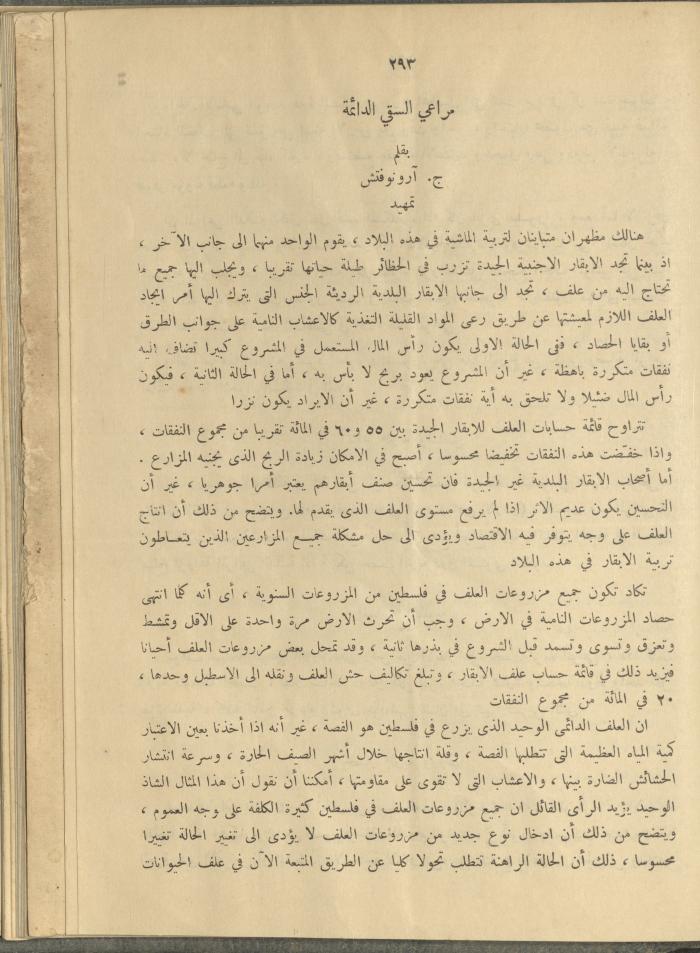 ٢٩٣
مراعي السقي الدائمة
بقلم
ج. آرونوفتش
تمهيد
هنالك مظهران متباينان لتربية الماشية في هذه البلاد ، يقوم الواحد منهما الى جانب الآخر ،
اذ بينما تجد الابقار الاجنبية الجيدة تزرب في الحظائر طيلة حياتها تقريبا ، ويجلب اليها جميع ما
تحتاج اليه من علف ، تجد الى جانبها الابقار البلدية الرديئة الجنس التى يترك اليها أمر ايجاد
العلف اللازم لمعيشتها عن طريق رعى المواد القليلة التغذية كالاعشاب النامية على جوانب الطرق
أو بقايا الحصاد ، ففى الحالة الاولى يكون رأس المال المستعمل في المشروع كبيرا تضاف اليه
نفقات متكررة باهظة ، غير أن المشروع يعود بربح لا بأس به ، أما في الحالة الثانية ، فيكون
رأس المال ضئيلا ولا تلحق به أية نفقات متكررة ، غير أن الايراد يكون نزرا
تتراوح قائمة حسابات العلف للابقار الجيدة بين ٥٥ و٦٠ في المائة تقريبا من مجموع النفقات ،
واذا خفّضت هذه النفقات تخفيضا محسوسا ، أصبح في الامكان زيادة الربح الذى يجنيه المزارع .
أما أصحاب الابقار البلدية غير الجيدة فان تحسين صنف أبقارهم يعتبر أمرا جوهريا ، غير أن
التحسين يكون عديم الاثر اذا لم يرفع مستوى العلف الذى يقدم لها. ويتضح من ذلك أن انتاج
العلف على وجه يتوفر فيه الاقتصاد ويؤدى الى حل مشكلة جميع المزارعين الذين يتعاطون
تربية الابقار في هذه البلاد
تكاد تكون جميع مزروعات العلف في فلسطين من المزروعات السنوية ، أى أنه كما انتهى
حصاد المزروعات النامية في الارض ، وجب أن تحرث الارض مرة واحدة على الاقل وتمشط
وتعزق وتسوى وتسمد قبل الشروع في بذرها ثانية ، وقد تمحل بعض مزروعات العلف أحيانا
فيزيد ذلك في قائمة حساب علف الابقار ، وتبلغ تكاليف حش العلف ونقله الى الاسطبل وحدها ،
٢٠ في المائة من مجموع النفقات
ان العلف الدائمى الوحيد الذى يزرع في فلسطين هو الفصة ، غير أنه اذا أخذنا بعين الاعتبار
كمية المياه العظيمة التى تتطلبها الفصة ، وقلة انتاجها خلال أشهر الصيف الحارة ، وسرعة انتشار
الحشائش الضارة بينها ، والاعشاب التى لا تقوى على مقاومتها ، أمكننا أن نقول أن هذا المثال الشاذ
الوحيد يؤيد الرأى القائل ان جميع مزروعات العلف في فلسطين كثيرة الكلفة على وجه العموم ،
ويتضح من ذلك أن ادخال نوع جديد من مزروعات العلف لا يؤدى الى تغيير الحالة تغييرا
محسوسا ، ذلك أن الحالة الراهنة تتطلب تحولا كليا عن الطريق المتبعة الآن في علف الحيوانات